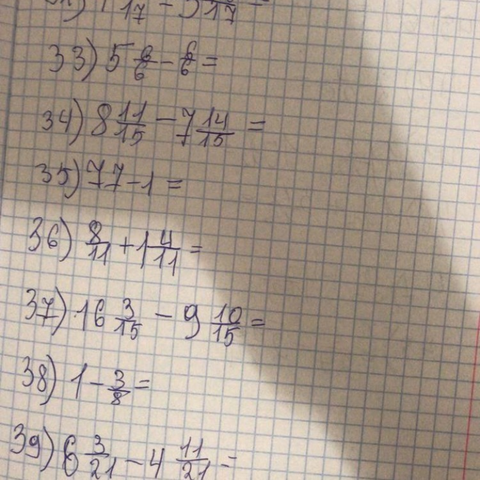 33) 5 6/6 - 6/6 =
34) 8 11/15 - 7 14/15 =
35) 77 - 1 =
36) 8/11 + 1 4/11 =
37) 16 3/15 - 9 10/15 =
38) 1 - 3/8 =
39) 6 3/21 - 4 11/21 =